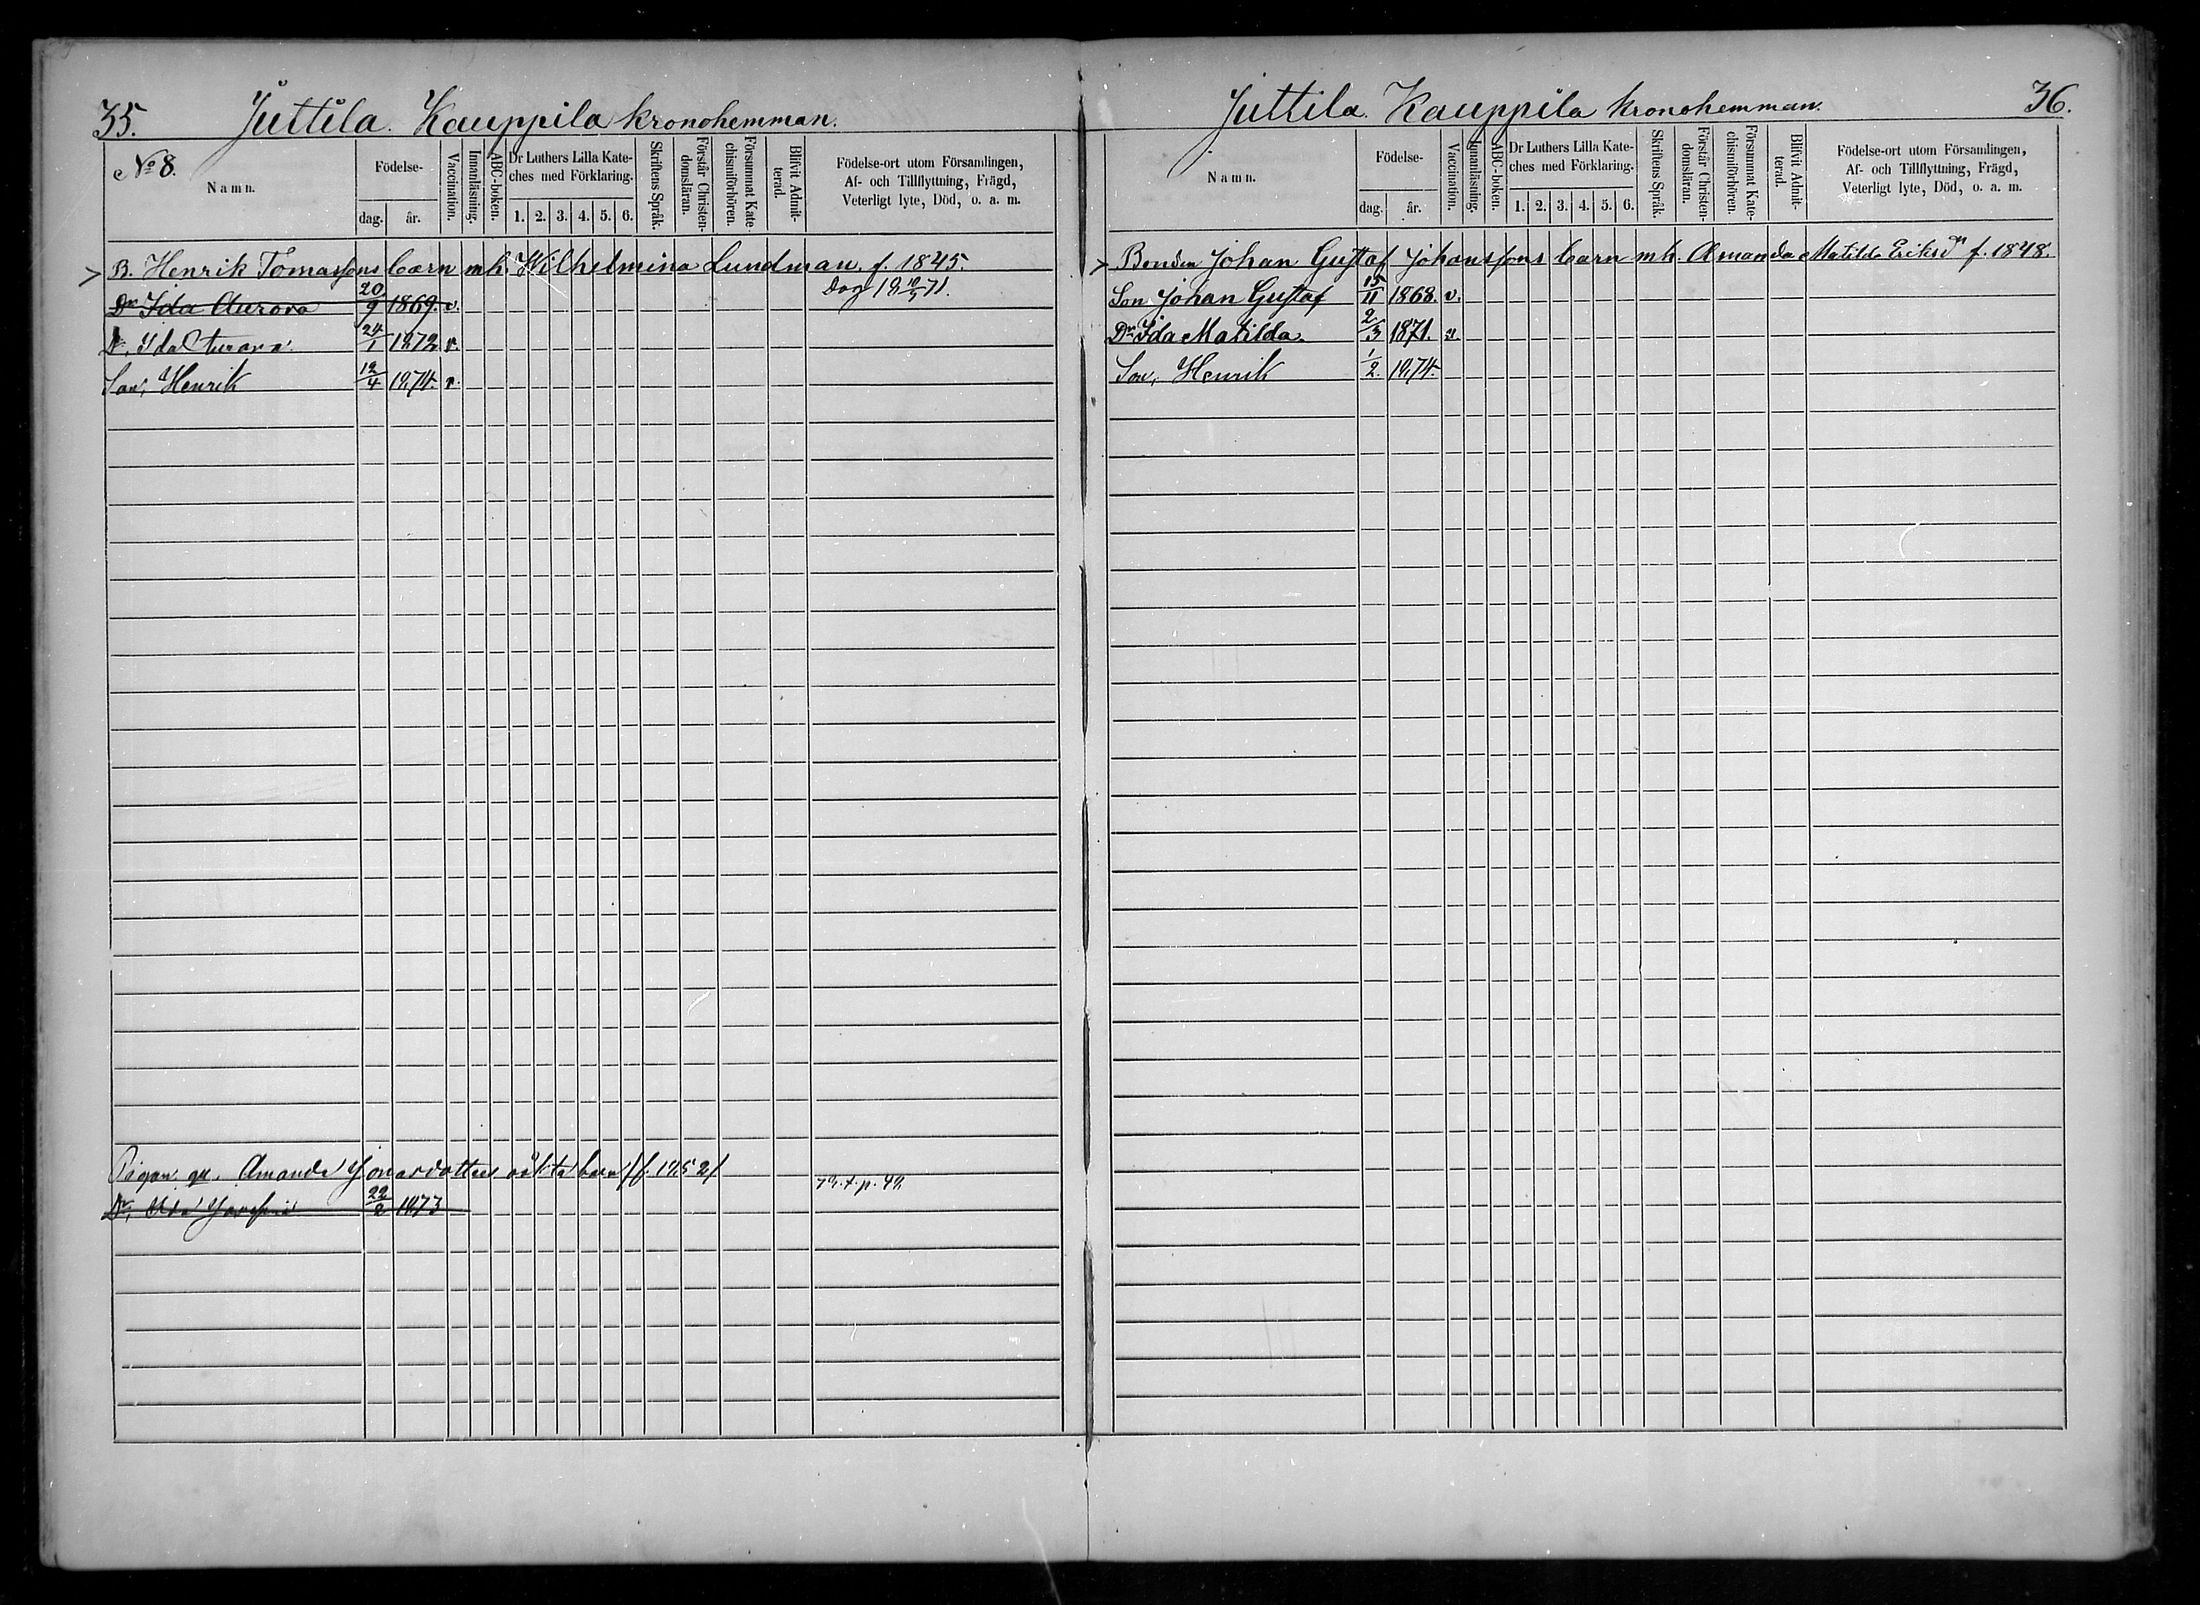 35. Juttila. Kauppila kronohemman.
No 8.
Namn.
Födelse-
dag. år.
Vaccination.
Innanläsning.
ABC-boken.
Dr Luthers Lilla Kate-
ches med Förklaring.
1. 2. 3. 4. 5. 6.
Skriftens Språk.
Förstår Christen-
domsläran.
Försummat Kate-
chismiförhören.
Blifvit Admit-
terad.
Födelse-ort utom Församlingen,
Af- och Tillflyttning, Frägd,
Veterligt lyte, Död, o. a. m.
B. Henrik Tomassons barn mh. Wilhelmina Lundman. f. 1845.
Dr Ida Aurora 20/9 1869. v. Dog 18 10/5 71.
Dr, Ida Aurora 24/1 1872. v.
Son, Henrik 12/4 1874. v.
Pigan Amanda Jonasdotters oäkta barn /f. 1852/
Dr, Ida 22/2 1873 p. 42
Juttila. Kauppila kronohemman. 36.
Namn.
Födelse-
dag. år.
Vaccination.
Innanläsning.
ABC-boken.
Dr Luthers Lilla Kate-
ches med Förklaring.
1. 2. 3. 4. 5. 6.
Skriftens Språk.
Förstår Christen-
domsläran.
Försummat Kate-
chismiförhören.
Blifvit Admit-
terad.
Födelse-ort utom Församlingen,
Af- och Tillflyttning, Frägd,
Veterligt lyte, Död, o. a. m.
Bonden Johan Gustaf Johanssons barn mh. Amanda Matilda Eriksdn f. 1848.
Son Johan Gustaf 15/11 1868. v.
Dr Ida Matilda. 2/3 1871. v.
Son, Henrik 1/2 1874.